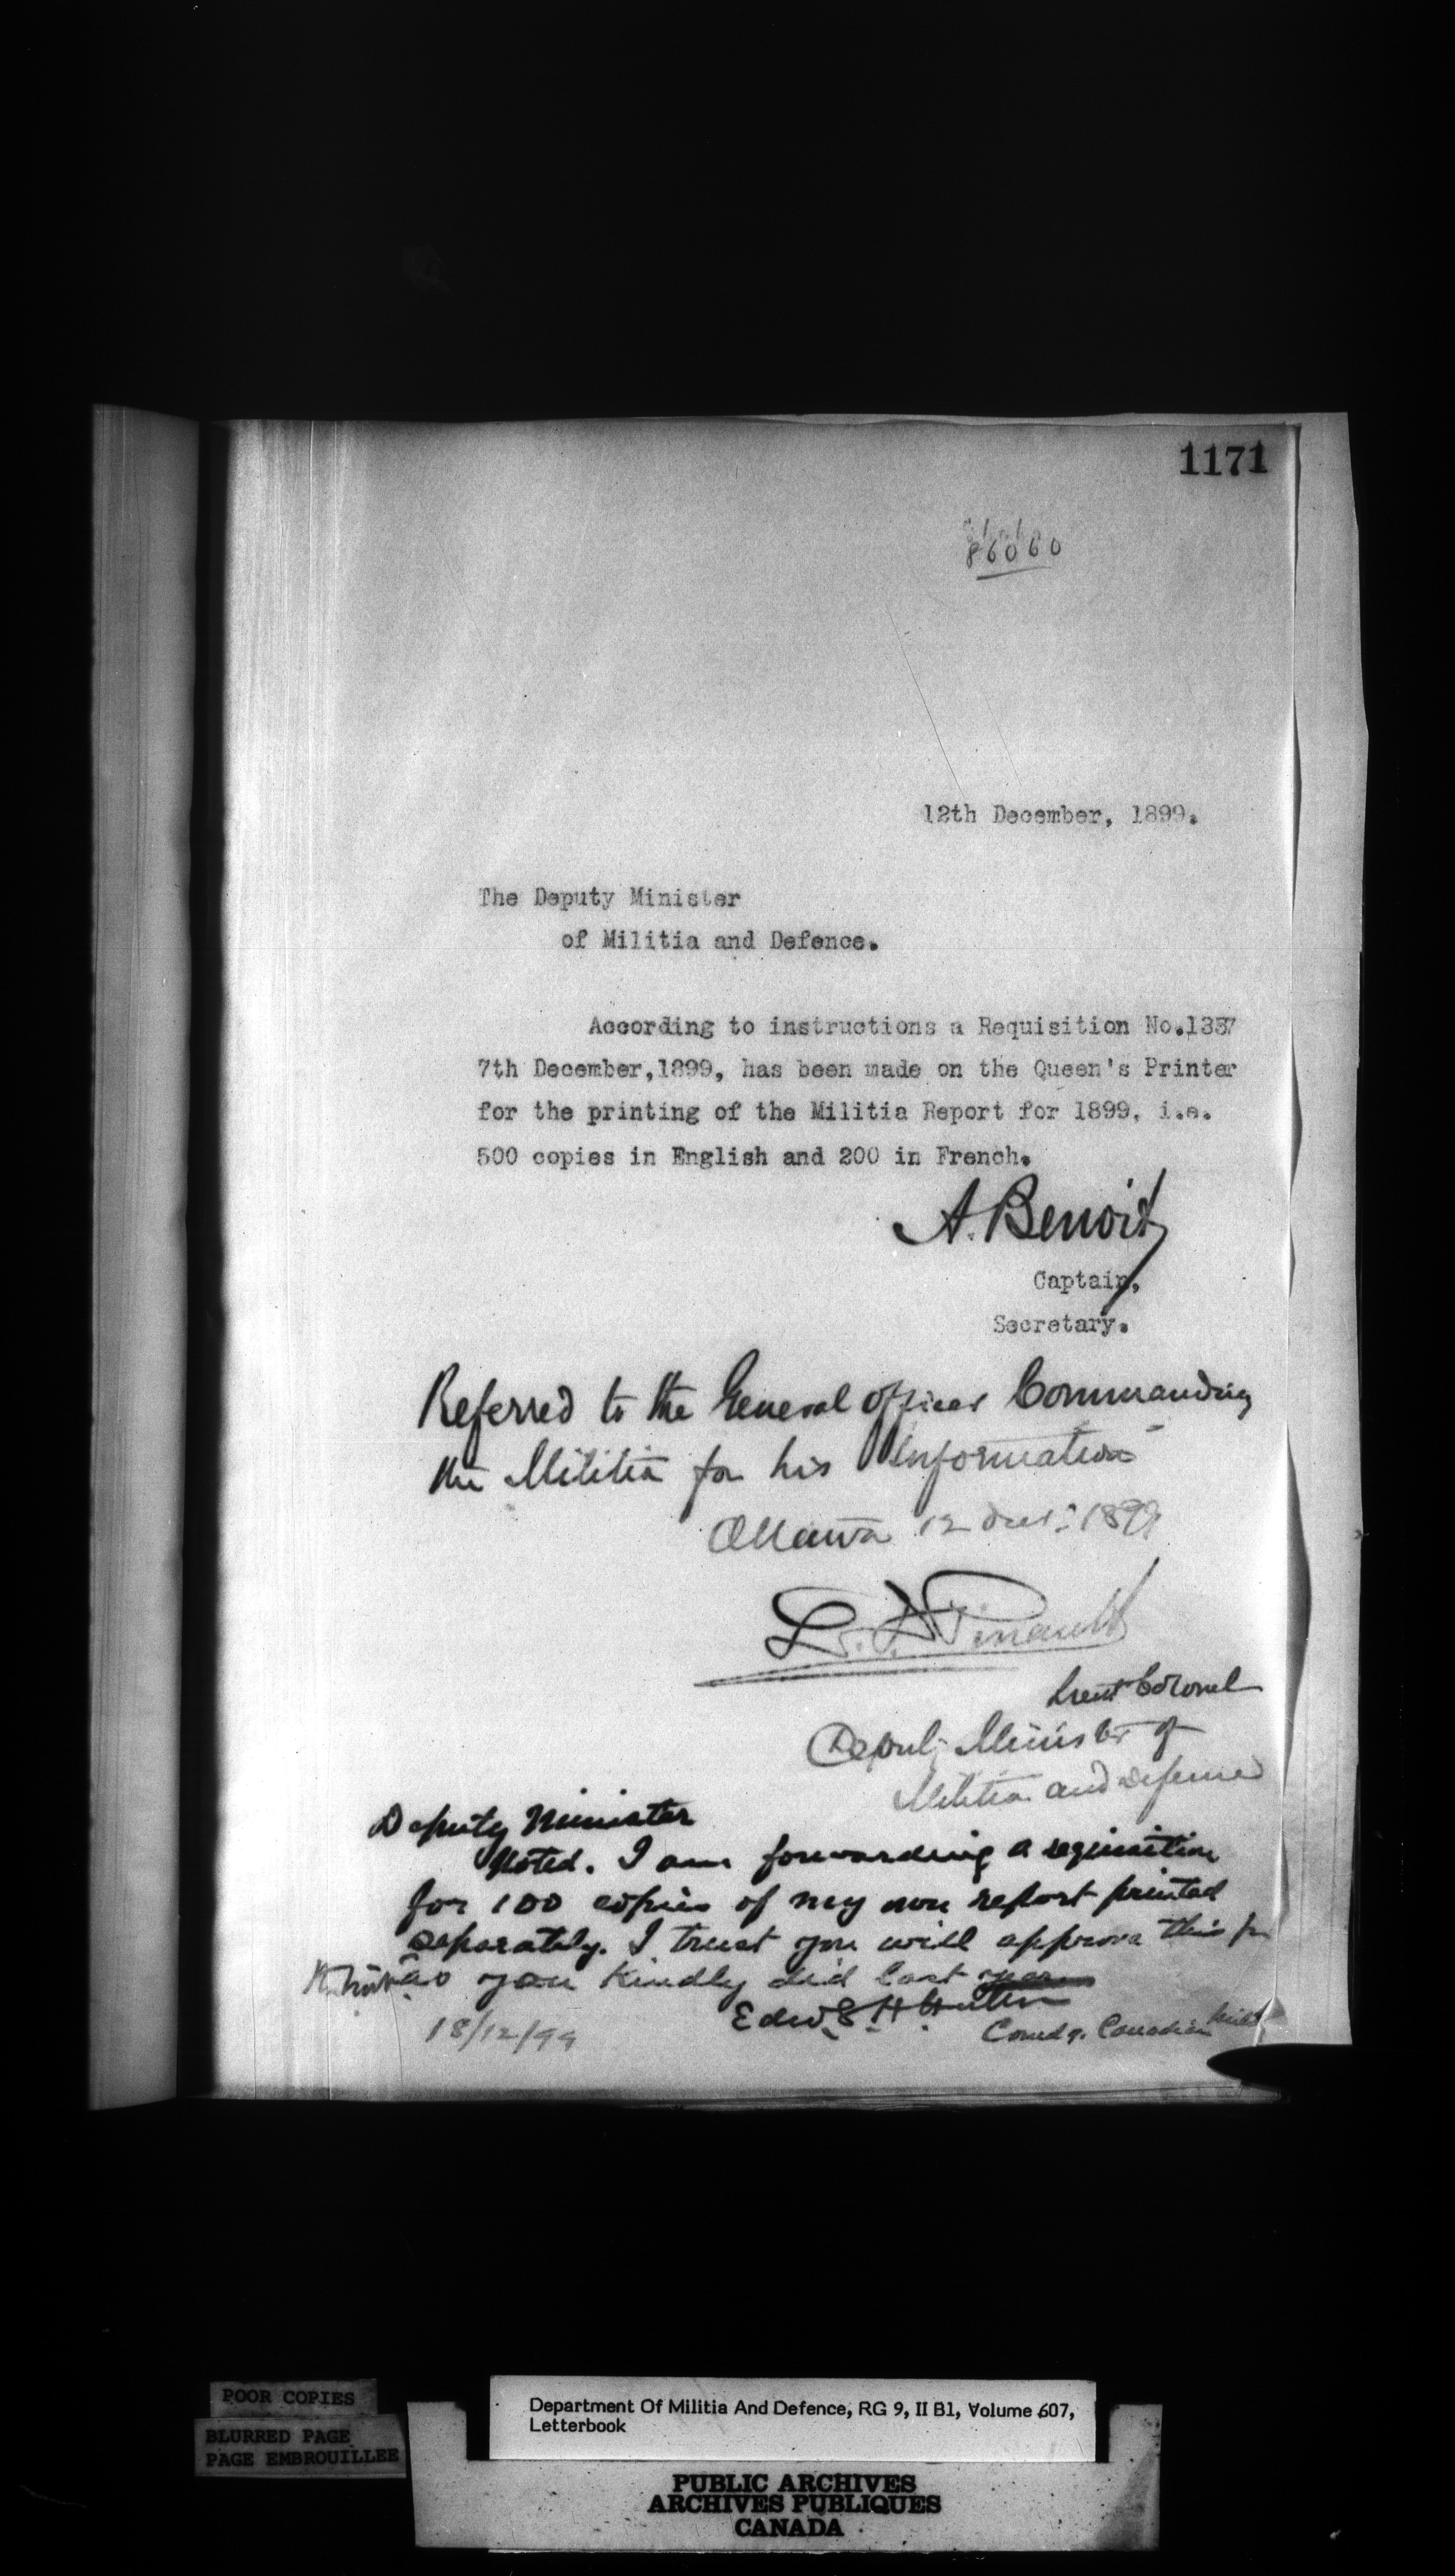 1171
86060
12th December, 1899.
The Deputy Minister
of Militia and Defence.
According to instructions a Requisition No.1357
7th December,1899, has been made on the Queen's Printer
for the printing of the Militia Report for 1899, i.e.
500 copies in English and 200 in French.
A. Benoit
Captain,
Secretary.
Referred to the General Officer Commanding
the Militia for his Information
Ottawa 12 Decr: 1899
L. F. Pinault
Lieut Colonel
Deputy Minister of
Militia and Defence
Deputy Minister
Noted. I am forwarding a requisition
for 100 copies of my own report printed
separately. I trust you will approve this for
as you kindly did last year
Edw. H. Hutton
18/12/99
Comdg. Canadian Milit
POOR COPIES
BLURRED PAGE
PAGE EMBROUILLEE
Department Of Militia And Defence, RG 9, II B1, Volume 607,
Letterbook
PUBLIC ARCHIVES
ARCHIVES PUBLIQUES
CANADA